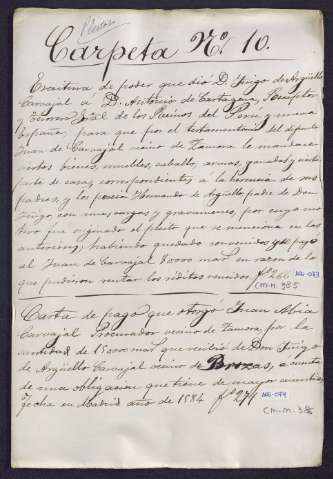 Pleitos
Carpeta Nº 10.
Escritura de poder que dió D. Iñigo de Argüello
Carvajal á D. Antonio de Cartagena, Receptor
y Tesorero Gral de los Reinos del Perú y nueva
España, para que por el testamentario del difunto
Juan de Carvajal vecino de Zamora le mandase
ciertos bienes, muebles, caballo, armas, ganados, y cierta
parte de casas, correspondientes á la herencia de sus
padres, y los poseia Hernando de Argüello, padre de Don
Iñigo, con sus cargos y gravamenes, por cuyo mo-
tivo fue originado el pleito que se menciona en las
anteriores, habiendo quedado convenidos que pago
al Juan de Carvajal 80000 mas en razon de lo
que pudieron rentar los réditos vencidos. fº 266 AG-073
C.M.M. 985
Carta de pago que otorgó Juan
Carvajal Procurador vecino de Zamora, por la
cantidad de 15000 mas que recibió de Don Iñigo
de Argüello Carvajal vecino de Brozas, á cuenta
de una obligacion que tiene de mayor cuantia,
fecha en Madrid año de 1584 fº 271 AG-074
C.M.M. 386